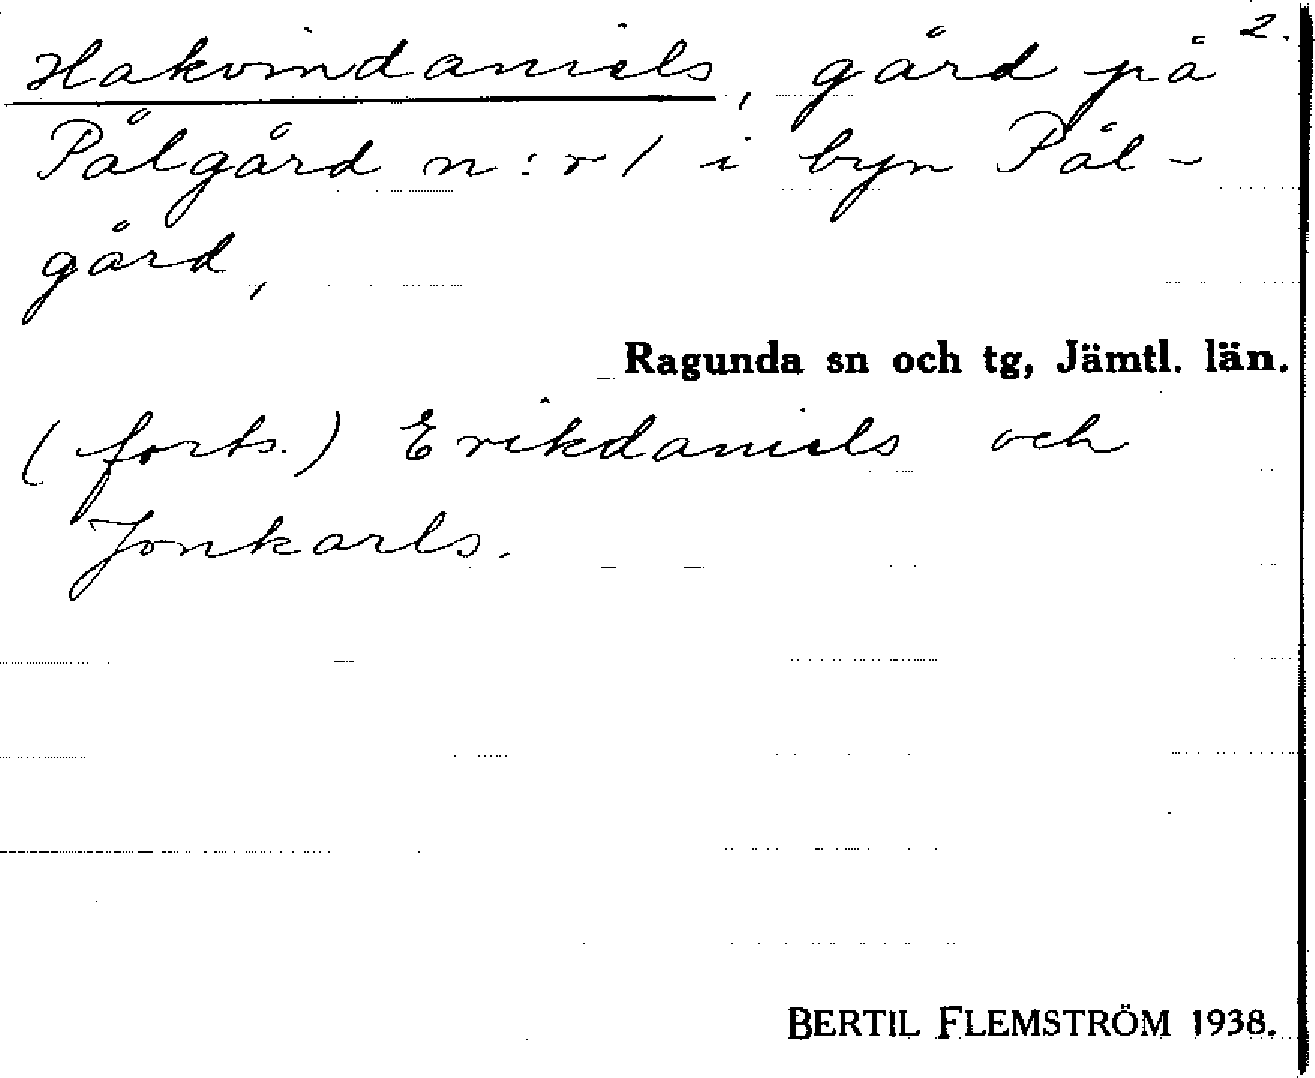 2.
Hakvindaniels, gård på
Pålgård n:r 1 i byn Pål-
gård,
Ragunda sn och tg, Jämtl. län.
(forts.) Erikdaniels och
Jonkarls.
BERTIL FLEMSTRÖM 1938.